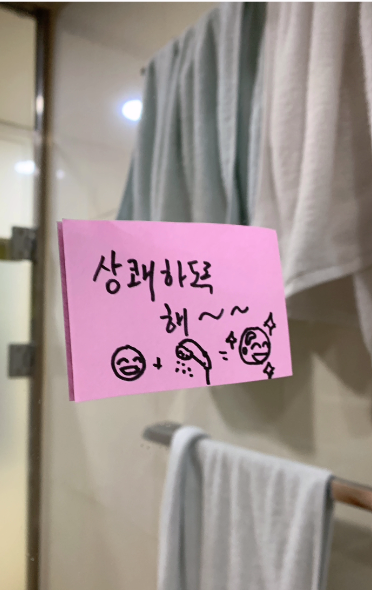 상쾌하도록
해~~
+ =